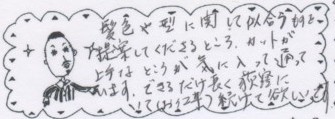 髪色や型に関して似合うものを
提案してくださるところ、カットが
上手なところが気に入って通って
います。できるだけ長く荻窪に
続けて欲しいです。